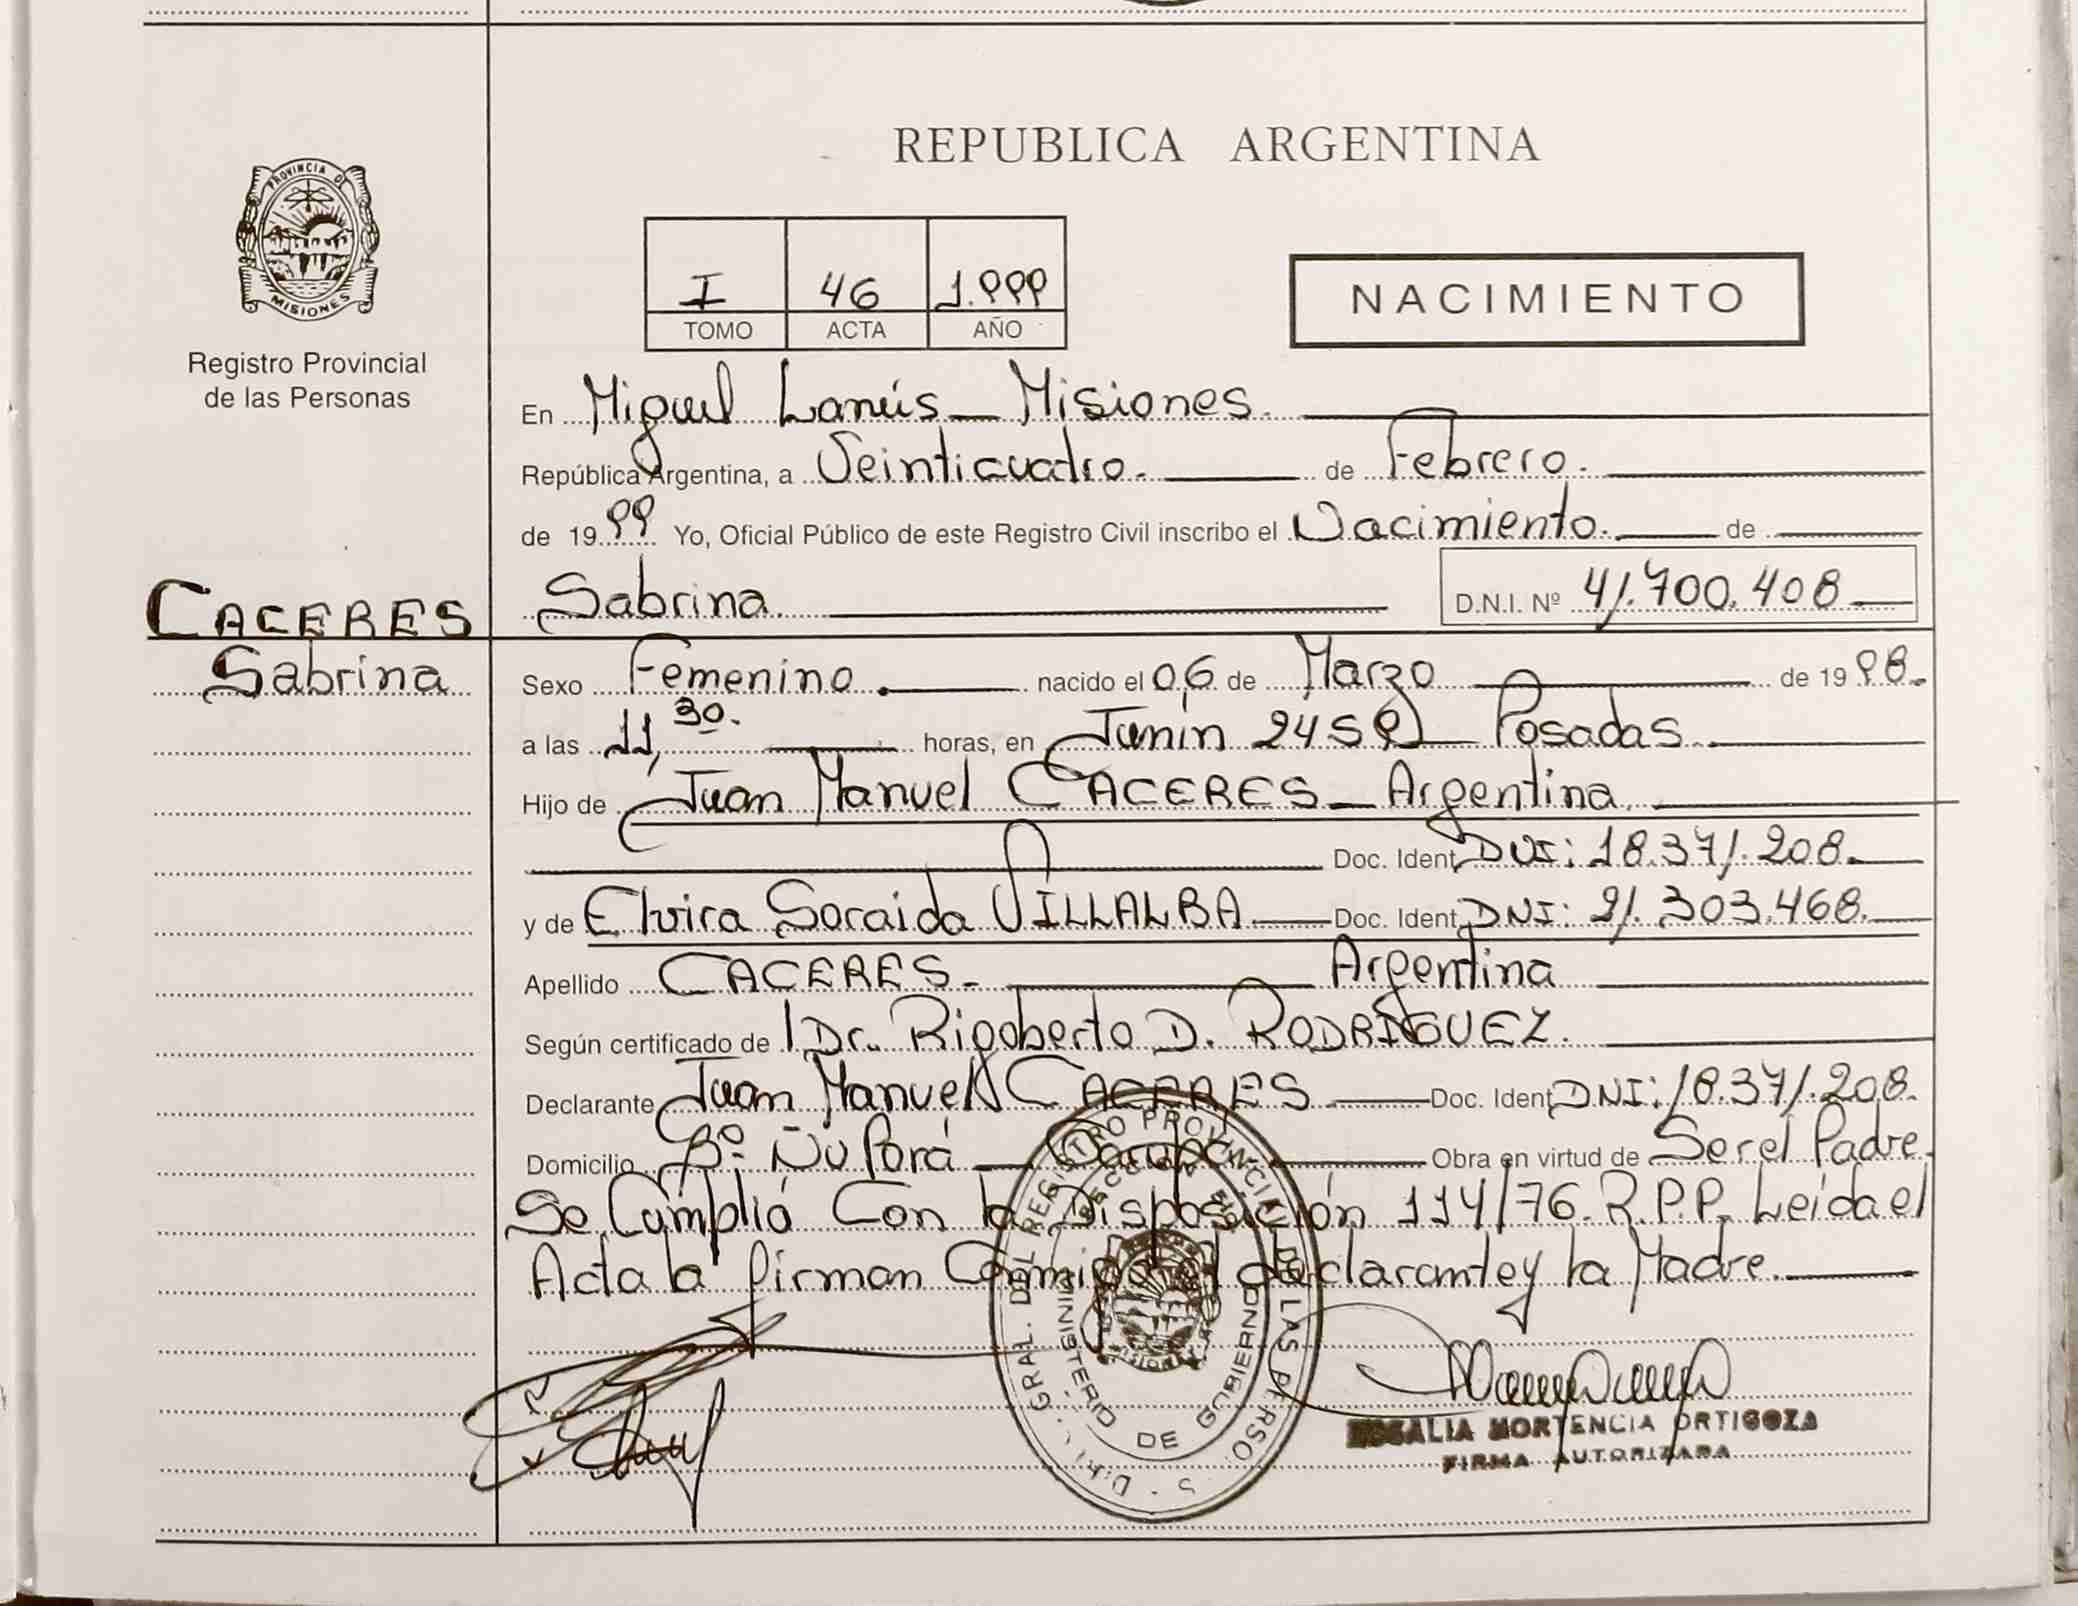 REPUBLICA ARGENTINA
PROVINCIA DE
MISIONES
Registro Provincial
de las Personas
I 46 1.999
TOMO ACTA AÑO
NACIMIENTO
En Miguel Lanús - Misiones.
República Argentina, a Veinticuatro. de Febrero.
de 1999 Yo, Oficial Público de este Registro Civil inscribo el Nacimiento. de
CACERES
Sabrina
Sabrina D.N.I. Nº 41.700.408
Sexo Femenino. nacido el 06 de Marzo de 1998.
a las 11,30. horas, en Junin 2459 Posadas
Hijo de Juan Manuel CACERES - Argentina.
Doc. Ident. DNI: 18.371.208.
y de Elvira Soraida VILLALBA Doc. Ident. DNI: 21.303.468.
Apellido CACERES. Argentina
Según certificado de Dr. Rigoberto D. RODRIGUEZ.
Declarante Juan Manuel CACERES Doc. Ident. DNI: 18.371.208.
Domicilio Bº: Ñu Porá - Obra en virtud de Ser el Padre.
Se Cumplió Con la Disposición 114/76. R.P.P. Leida el
Acta la firman Conmigo el declarante y la Madre.
DIR. GRAL. DEL REGISTRO PROVINCIAL DE LAS PERSONAS
MINISTERIO DE GOBIERNO
MISIONES
ROSALIA HORTENCIA ORTIGOZA
FIRMA AUTORIZADA